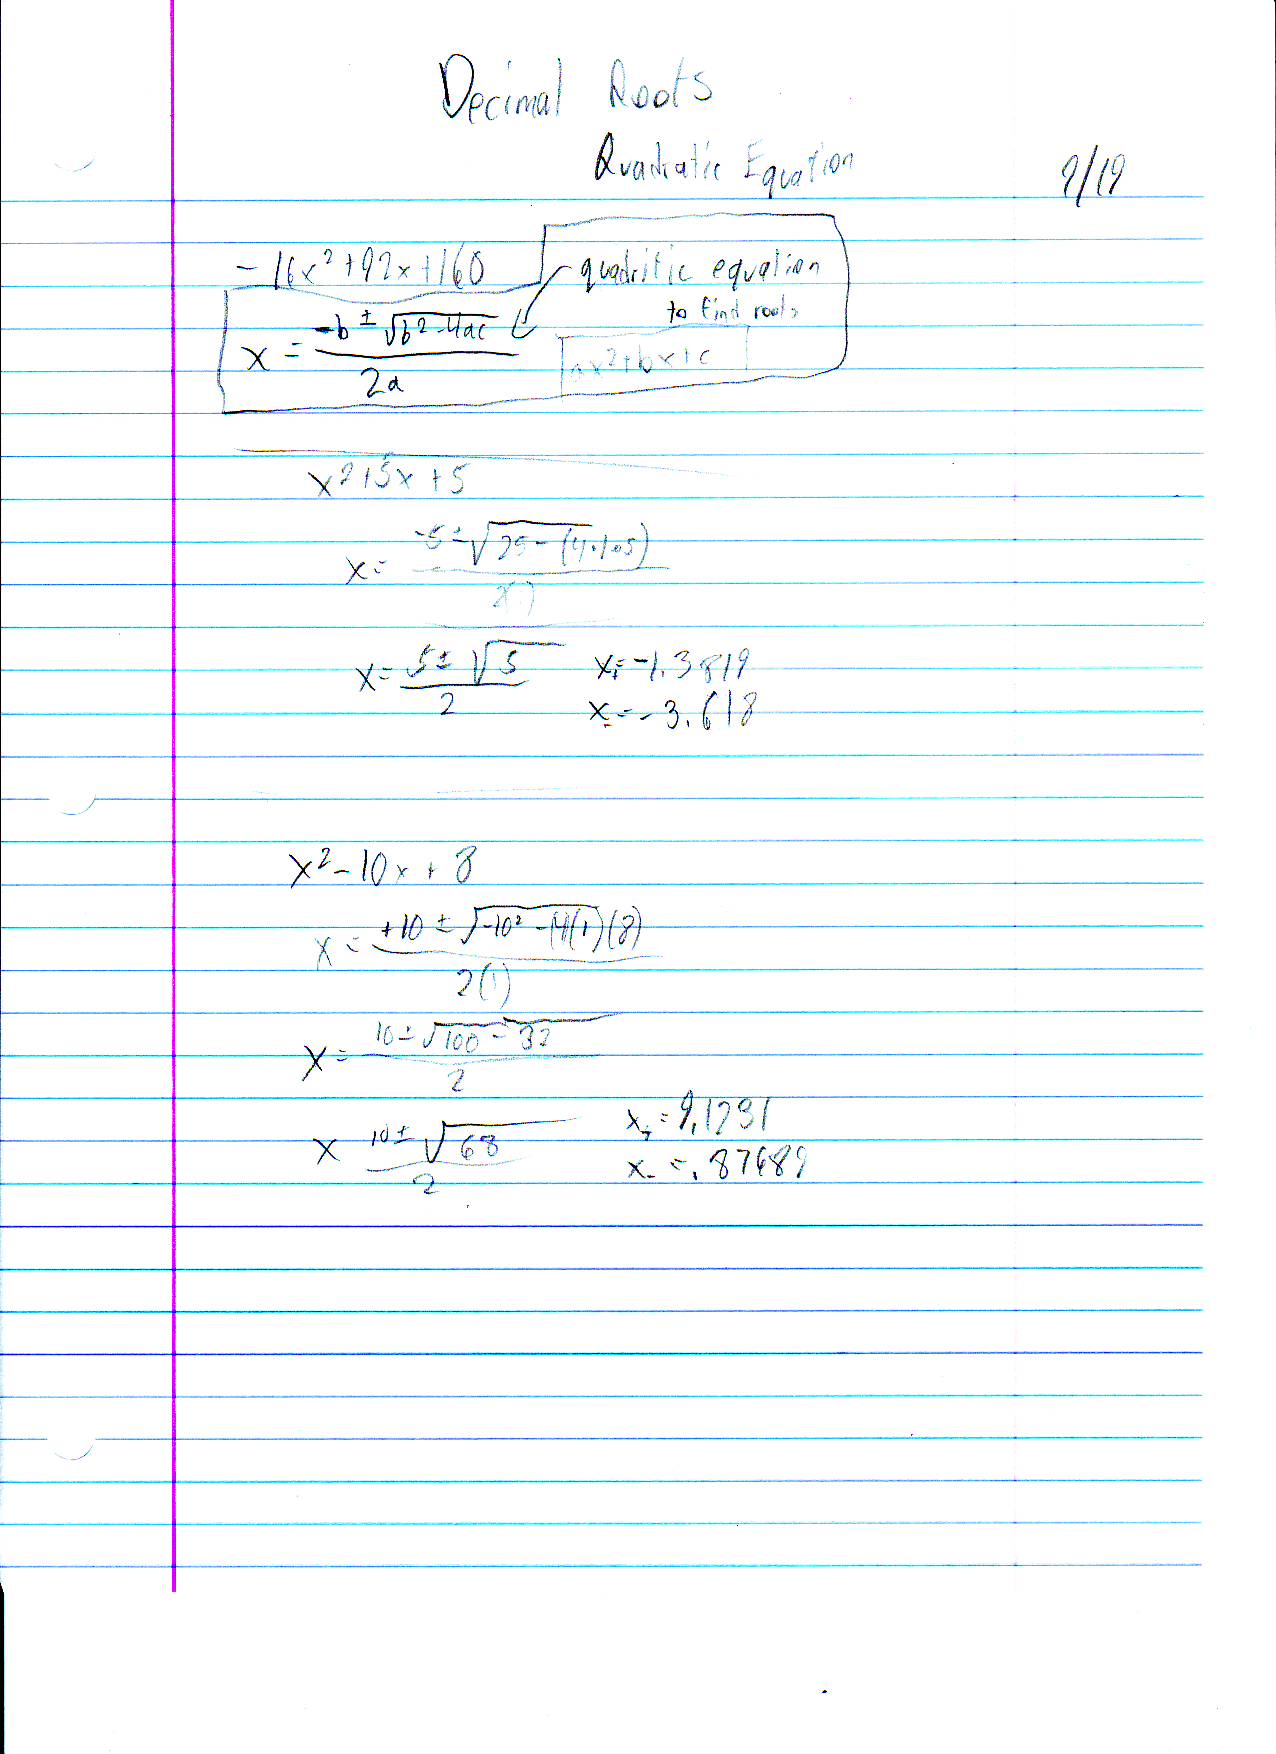 Decimal Roots
Quadratic Equation
9/19
-16x²+92x+160
quadritic equation
to find roots
x = -b ± √b²-4ac / 2a
ax²+bx+c
x²+5x+5
x= -5 ± √25-(4·1·5) / 2( )
x= 5 ± √5 / 2
x₊=-1.3819
x₋=-3.618
x²-10x+8
x= +10 ± √-10²-(4(1)(8) / 2(1)
x= 10 ± √100-32 / 2
x 10 ± √68 / 2
x₊=9.1231
x₋=.87689